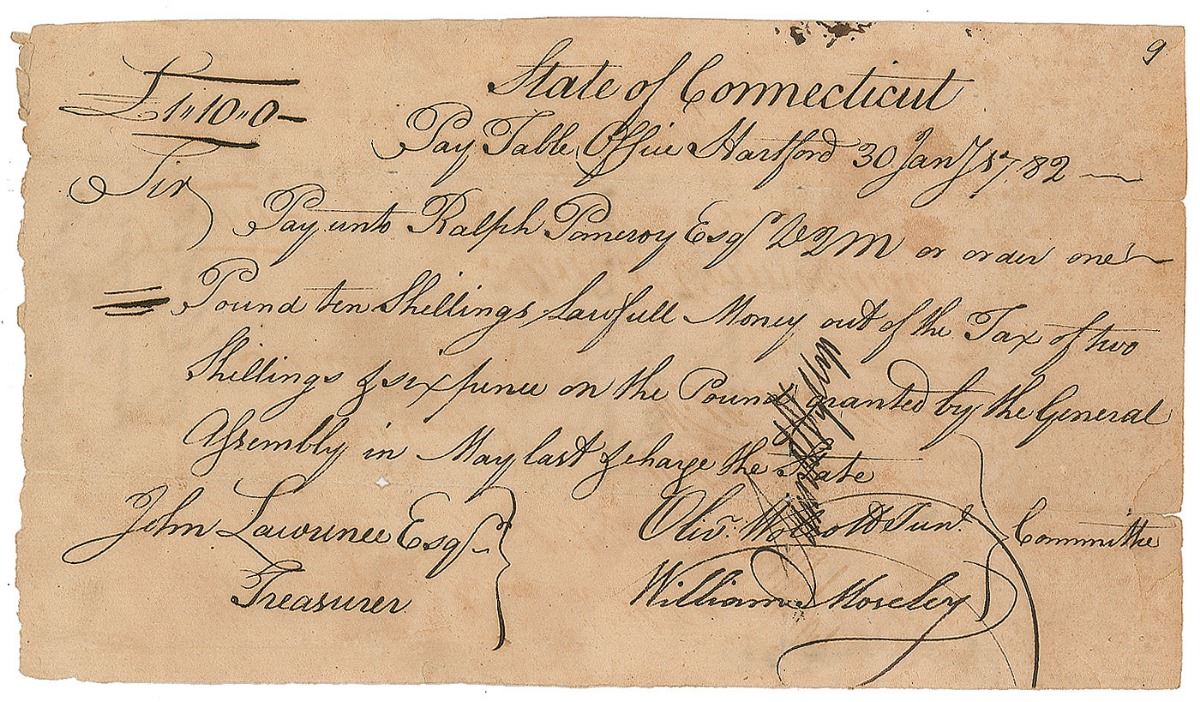 9
State of Connecticut
£1"10"0-
Pay Table Office Hartford 30 Jany 1782
Sir
Pay unto Ralph Pomeroy Esqr DQM or order one
Pound ten Shillings Lawfull Money out of the Tax of two
Shillings & six pence on the Pound granted by the General
Assembly in May last & charge the State
John Lawrence Esqr
Treasurer
Olivr. Wolcott Junr.
William Moseley
Committee